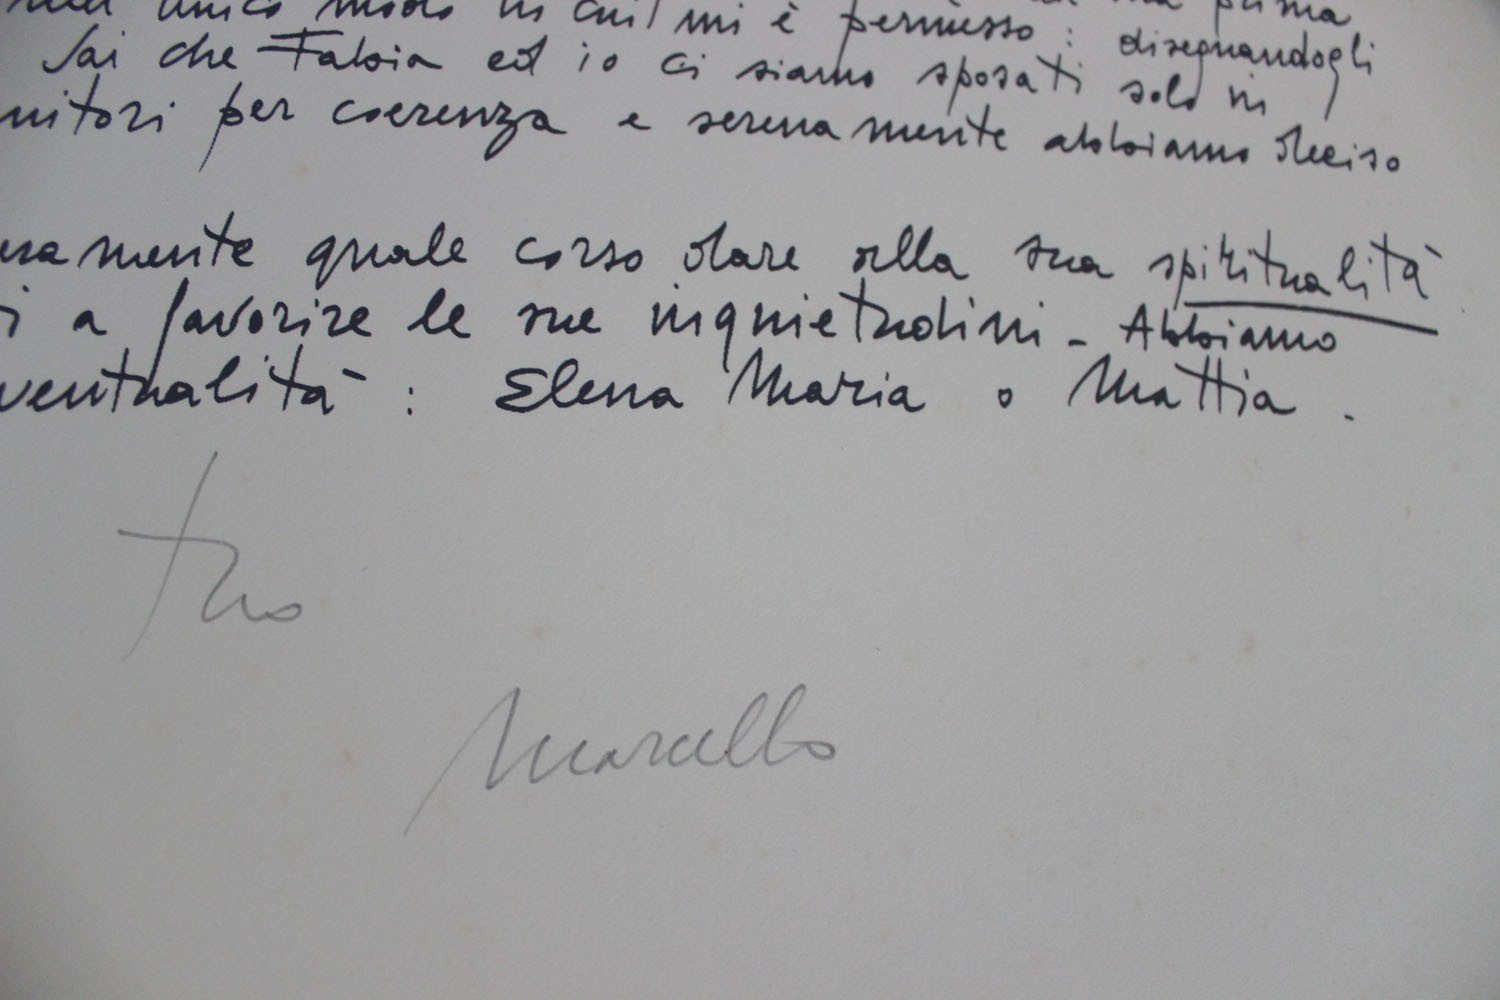 unico modo in cui mi è permesso : disegnandogli prima
Sai che Fabia ed io ci siamo sposati solo in
nitori per coerenza e serenamente abbiamo deciso
mente quale corso dare alla sua spiritualità
i a favorire le sue inquietudini - Abbiamo
ventualità : Elena Maria o Mattia .
tuo
Marcello